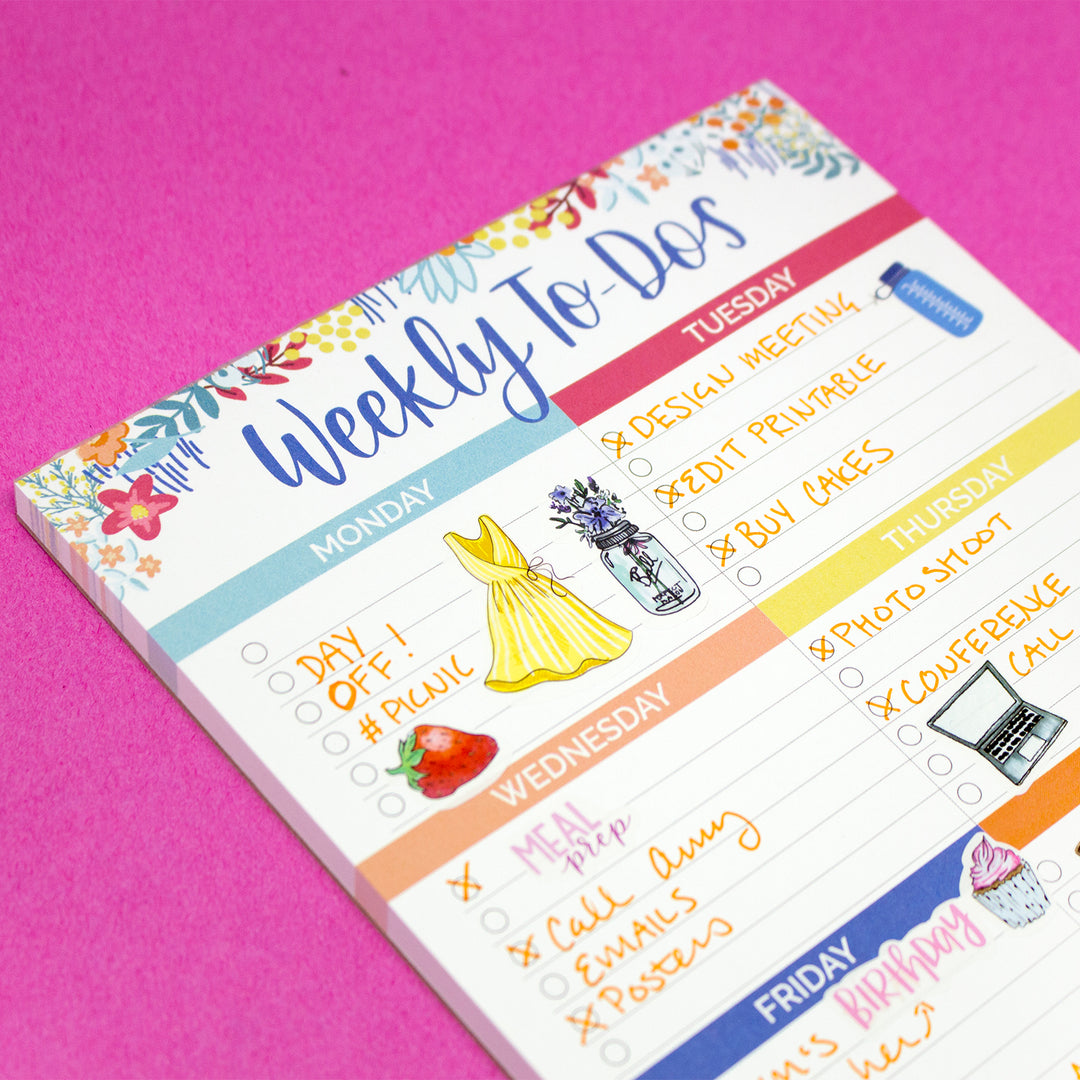 Weekly To-Dos
MONDAY
DAY
OFF!
#PICNIC
Ball
TUESDAY
DESIGN MEETING
EDIT PRINTABLE
BUY CAKES
WEDNESDAY
MEAL
prep
Call Amy
EMAILS
Posters
THURSDAY
PHOTO SHOOT
CONFERENCE
CALL
FRIDAY
BIRthday
her